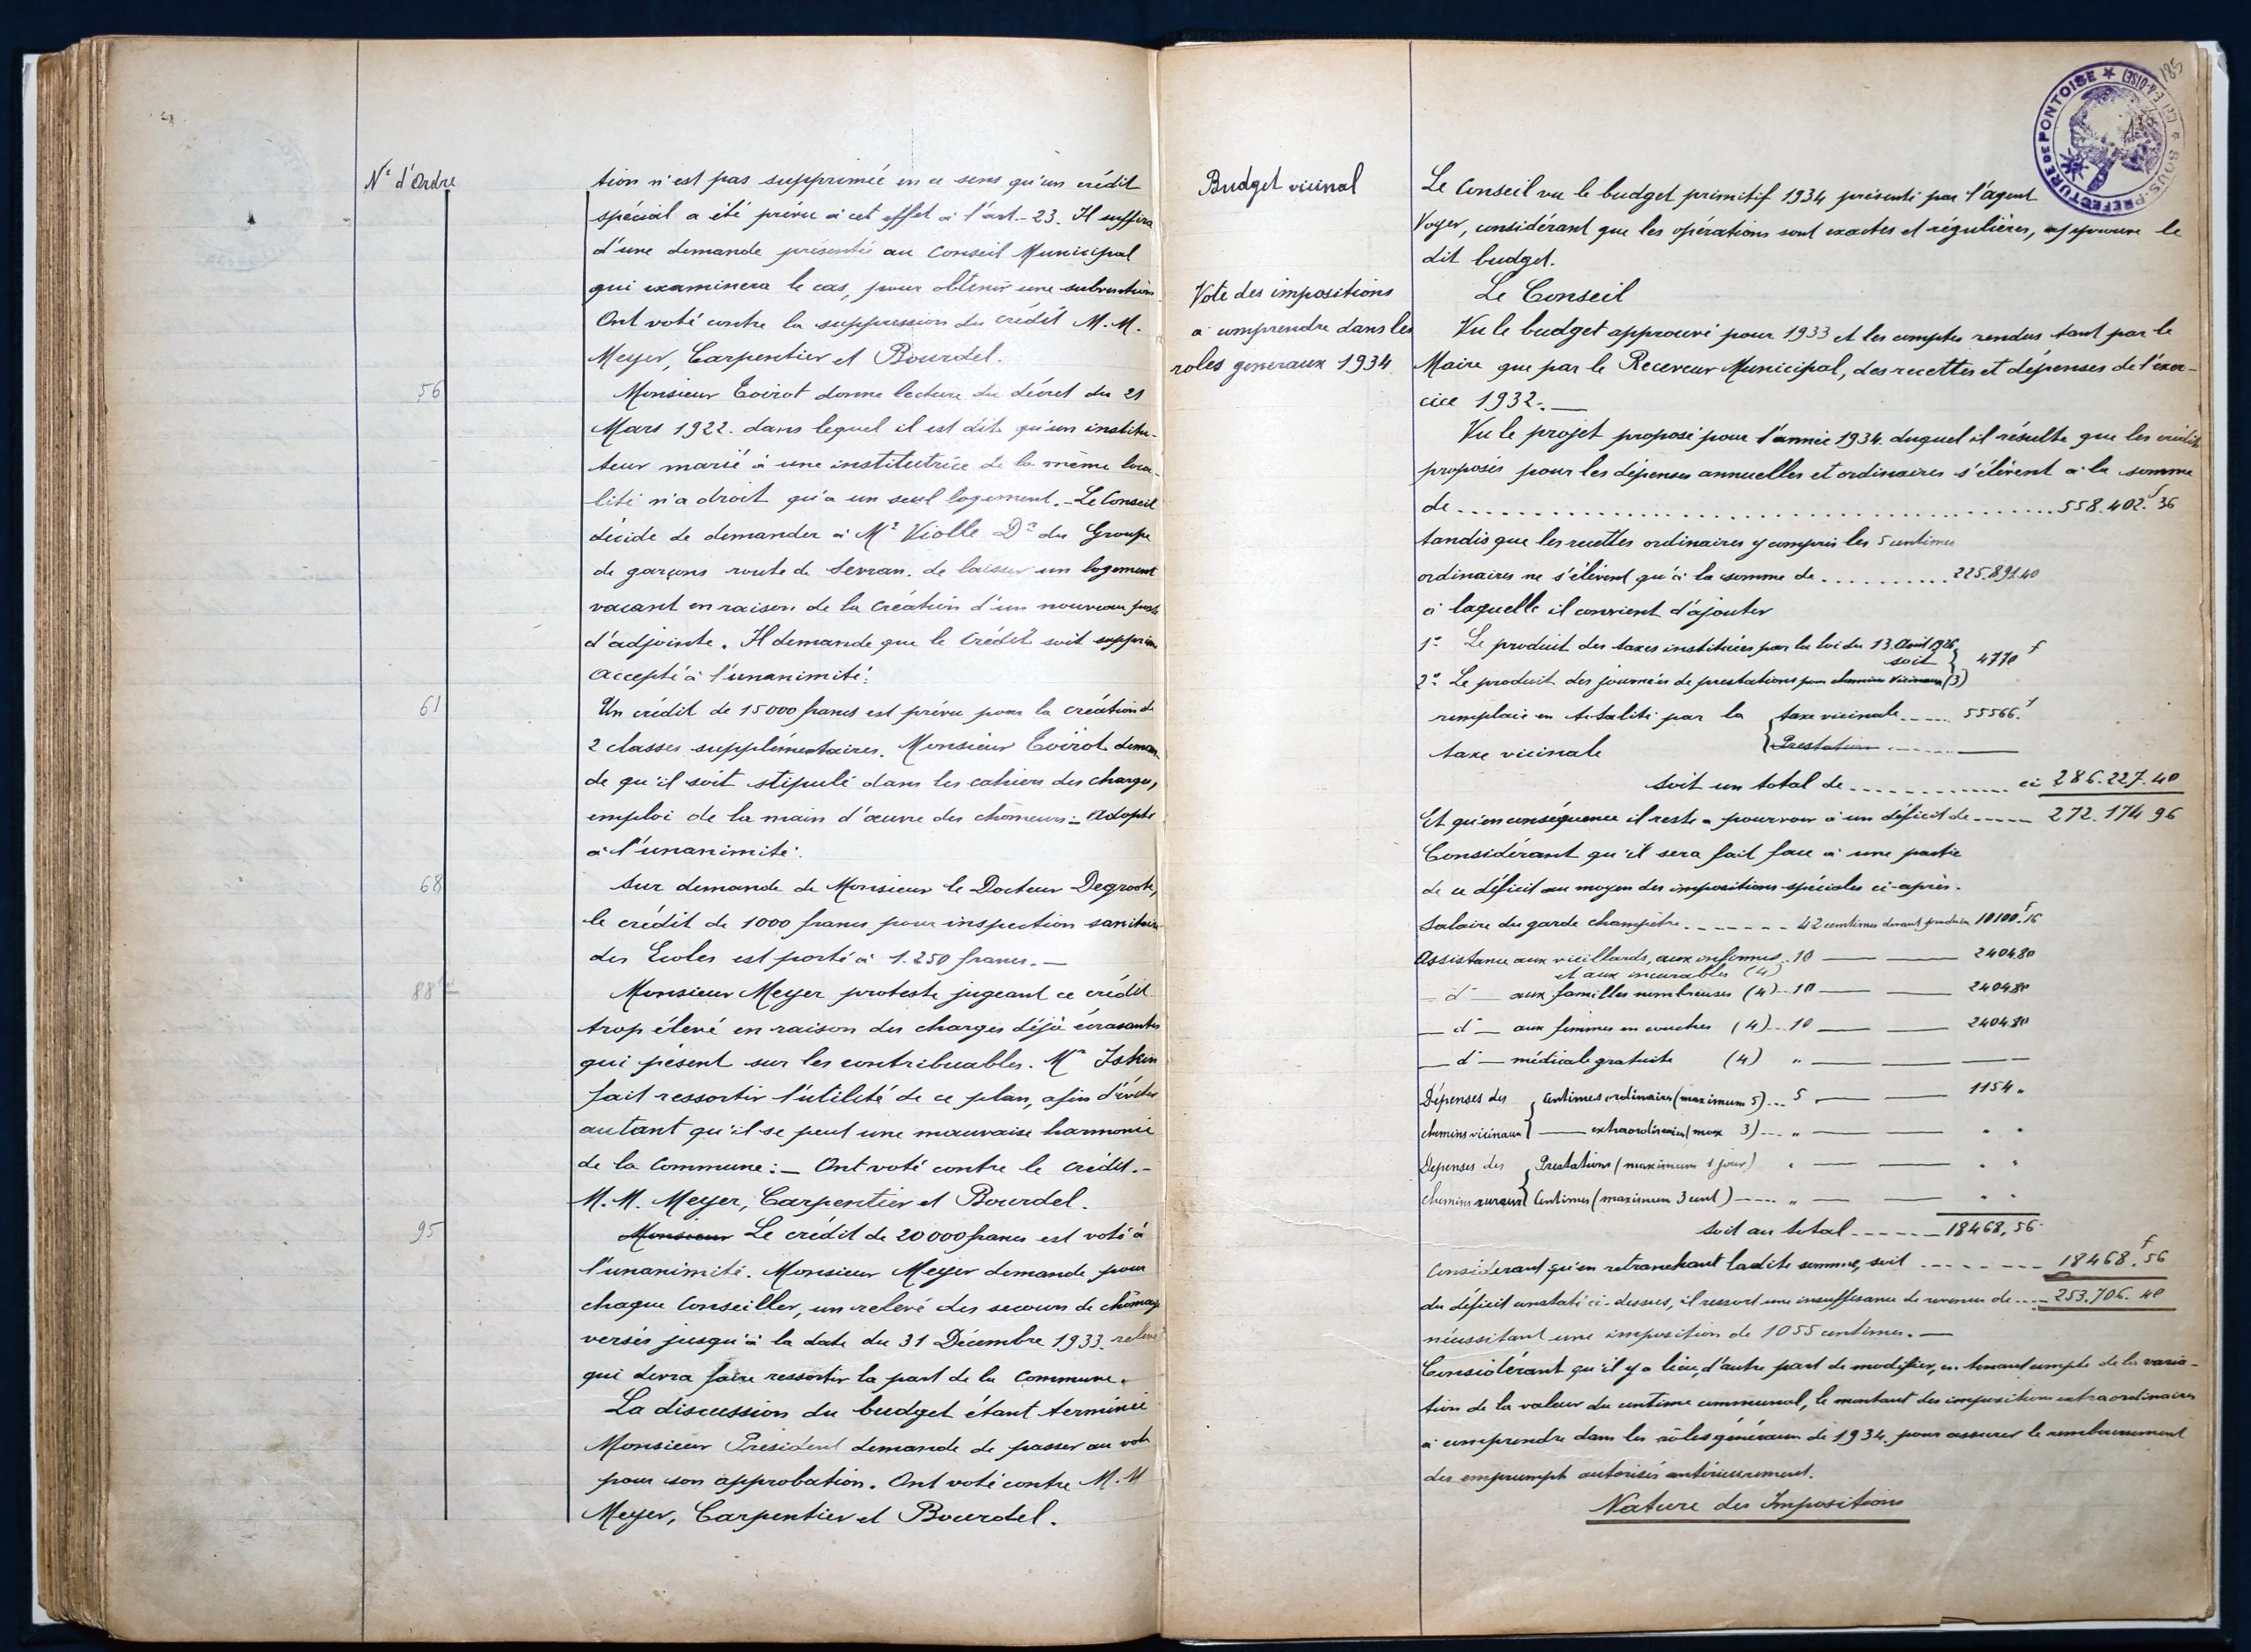 N° d'Ordre
tion n'est pas supprimée en ce sens qu'un crédit
spécial a été prévu à cet effet à l'art.-23. Il suffira
d'une demande présentée au Conseil Municipal
qui examinera le cas, pour obtenir une subvention
Ont voté contre la suppression du crédit M.M.
Meyer, Carpentier et Bourdel.
56
Monsieur Toirot donne lecture du décret du 21
Mars 1922. dans lequel il est dit qu'un institu-
teur marié à une institutrice de la même loca-
lité n'a droit qu'à un seul logement.- Le Conseil
décide de demander à Mr Violle Dr du Groupe
de garçons route de Sevran. de laisser un logement
vacant en raison de la création d'un nouveau poste
d'adjointe. Il demande que le Crédit soit supprimé
Accepté à l'unanimité.
61
Un crédit de 15000 francs est prévu pour la création de
2 classes supplémentaires. Monsieur Toirot deman-
de qu'il soit stipulé dans les cahiers des charges,
emploi de la main d'œuvre des chômeurs:- Adopté
à l'unanimité.
68
Sur demande de Monsieur le Docteur Degroote,
le crédit de 1000 francs pour inspection sanitaire
des Ecoles est porté à 1.250 francs.—
88
Monsieur Meyer proteste jugeant ce crédit
trop élevé en raison des charges déjà écrasantes
qui pèsent sur les contribuables. Mr
fait ressortir l'utilité de ce plan, afin d'éviter
autant qu'il se peut une mauvaise harmonie
de la Commune:- Ont voté contre le crédit.-
M.M. Meyer, Carpentier et Bourdel.
95
Monsieur Le crédit de 20000 francs est voté à
l'unanimité. Monsieur Meyer demande pour
chaque Conseiller, un relevé des secours de chômage
versés jusqu'à la date du 31 Décembre 1933. relevé
qui devra faire ressortir la part de la Commune.
La discussion du budget étant terminée
Monsieur Président demande de passer au vote
pour son approbation. Ont voté contre M.M
Meyer, Carpentier et Bourdel.
185
SOUS-PREFECTURE DE PONTOISE ★ (S.-ET-OISE) ★
Budget vicinal
Le Conseil vu le budget primitif 1934 présenté par l'agent
Voyer, considérant que les opérations sont exactes et régulières, approuve le
dit budget.
Vote des impositions
à comprendre dans les
roles generaux 1934
Le Conseil
Vu le budget approuvé pour 1933 et les comptes rendus tant par le
Maire que par le Receveur Municipal, des recettes et dépenses de l'exer-
cice 1932.—
Vu le projet proposé pour l'année 1934. duquel il résulte que les crédits
proposés pour les dépenses annuelles et ordinaires s'élèvent à la somme
de ........ 558.402.f 36
tandis que les recettes ordinaires y compris les 5 centimes
ordinaires ne s'élèvent qu'à la somme de .......... 225.891.40
à laquelle il convient d'ajouter
1° Le produit des taxes instituées par la loi du 13 Août 1926
soit } 4770 f
2° Le produit des journées de prestations pour chemins vicinaux (3)
remplacé en totalité par la { taxe vicinale ..... 55566. f
taxe vicinale { Prestation ..... —
soit un total de ............. ci 286.227.40
Et qu'en conséquence il reste à pourvoir à un déficit de ----- 272.174 96
Considérant qu'il sera fait face à une partie
de ce déficit au moyen des impositions spéciales ci-après.
Salaire du garde champêtre ------- 42 centimes devant produire 10100.f 16
Assistance aux vieillards, aux infirmes .. 10 — — 2404.80
et aux incurables (4)
— d° — aux familles nombreuses (4) .. 10 — — 2404.80
— d° — aux femmes en couches (4) ... 10 — — 2404.80
— d° — médicale gratuite (4) " — — —
Dépenses des { Centimes ordinaires (maximum 5) ... 5 — — 1154 "
chemins vicinaux { — extraordinaires (max 3) ... " — — " "
Dépenses des { Prestations (maximum 1 jour) " — — " "
chemins ruraux { Centimes (maximum 3 cent) ---- " — — " "
Soit au total ------ 18468,56
Considérant qu'en retranchant ladite somme, soit -------- 18468.f 56
du déficit constaté ci-dessus, il ressort une insuffisance de revenus de ---- 253.706. 40
nécessitant une imposition de 1055 centimes.—
Considérant qu'il y a lieu, d'autre part de modifier, en tenant compte de la varia-
tion de la valeur du centime communal, le montant des impositions extraordinaires
à comprendre dans les rôles généraux de 1934. pour assurer le remboursement
des emprumpts autorisés antérieurement.
Nature des Impositions